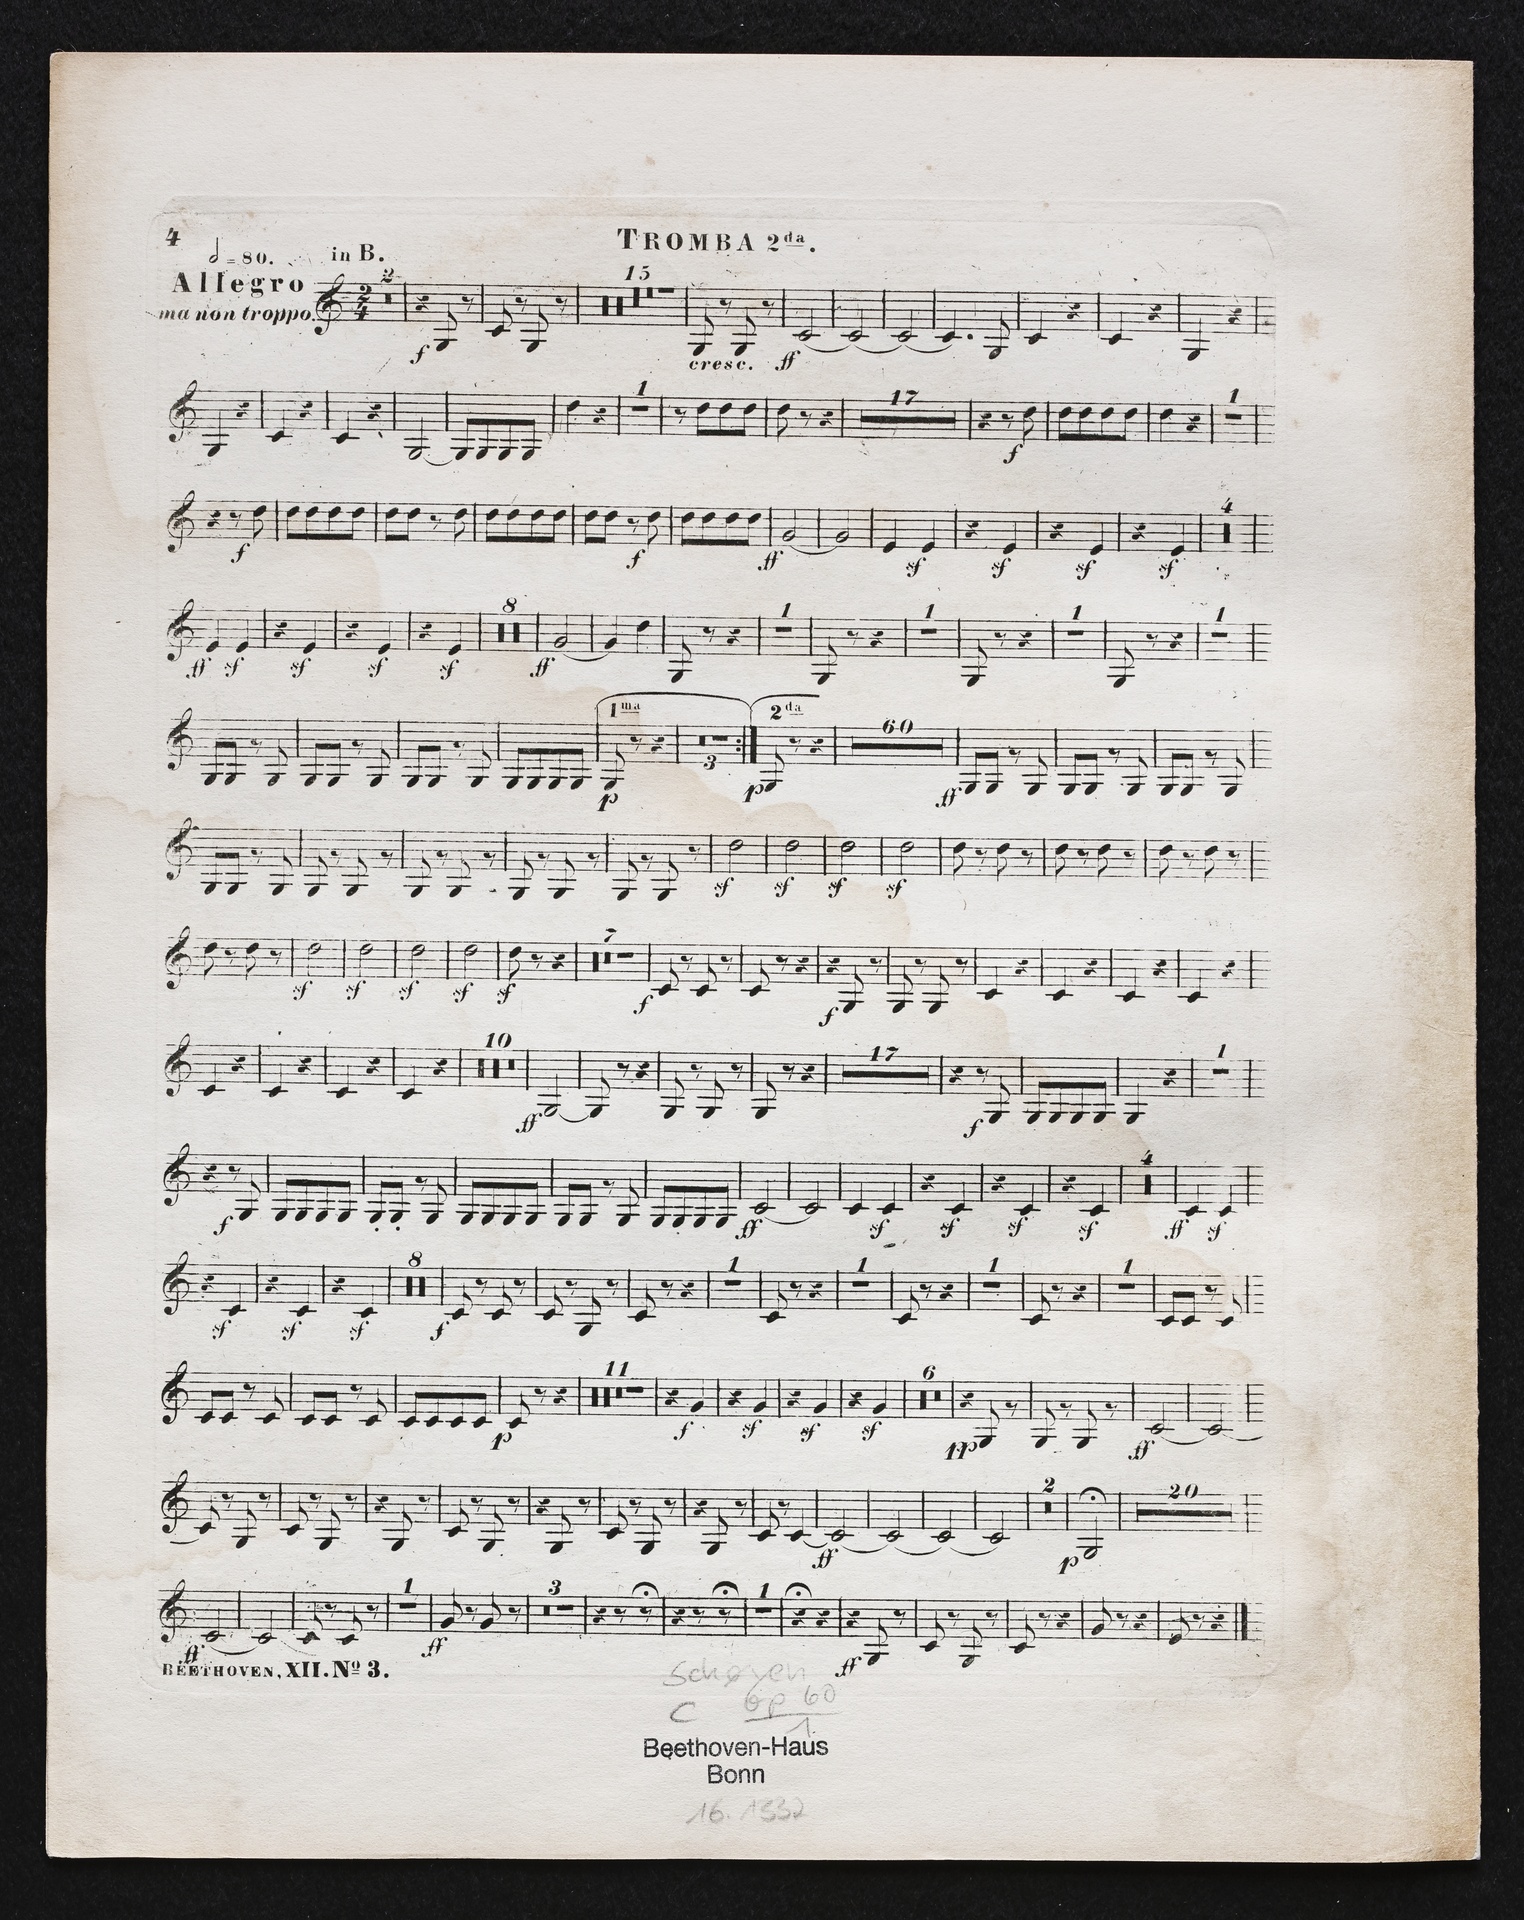 4
TROMBA 2da.
𝅗𝅥 = 80. in B.
Allegro
ma non troppo.
2 15
f cresc. ff
1 17 1
f
4
f f ff sf sf sf sf
8 1 1 1 1
ff sf sf sf sf ff
1ma 2da 60
3
p p ff
sf sf sf sf
7
sf sf sf sf sf f f
10 17 1
ff f
4
f ff sf sf sf sf ff sf
8 1 1 1 1
sf sf sf f
11 6
p f sf sf sf pp ff
2 20
ff p
1 3 1
ff ff ff
BEETHOVEN, XII. No 3.
Schøyen
C op 60
1
Beethoven-Haus
Bonn
16. 1332